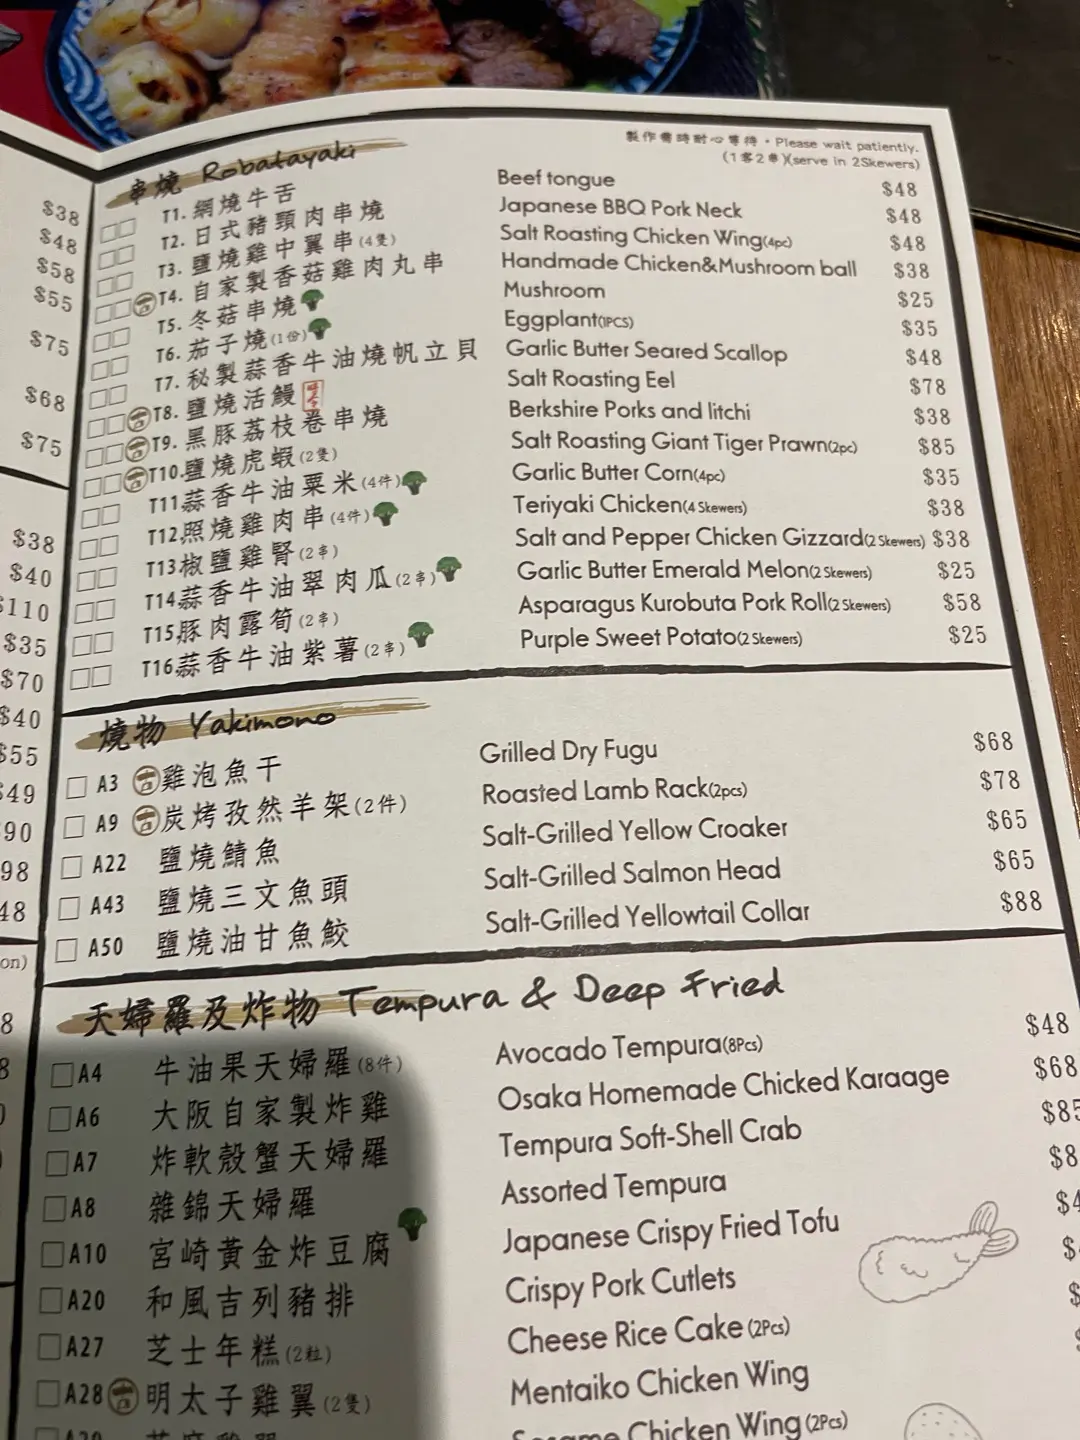 製作需時耐心等待。Please wait patiently.
(1客2串)(serve in 2Skewers)
串燒 Robatayaki
T1. 網燒牛舌 Beef tongue $48
T2. 日式豬頸肉串燒 Japanese BBQ Pork Neck $48
T3. 鹽燒雞中翼串(4隻) Salt Roasting Chicken Wing(4pc) $48
T4. 自家製香菇雞肉丸串 Handmade Chicken&Mushroom ball $38
T5. 冬菇串燒 Mushroom $25
T6. 茄子燒(1份) Eggplant(1PCS) $35
T7. 秘製蒜香牛油燒帆立貝 Garlic Butter Seared Scallop $48
T8. 鹽燒活鰻 Salt Roasting Eel $78
T9. 黑豚荔枝卷串燒 Berkshire Porks and litchi $38
T10.鹽燒虎蝦(2隻) Salt Roasting Giant Tiger Prawn(2pc) $85
T11蒜香牛油粟米(4件) Garlic Butter Corn(4pc) $35
T12.照燒雞肉串(4件) Teriyaki Chicken(4 Skewers) $38
T13椒鹽雞腎(2串) Salt and Pepper Chicken Gizzard(2 Skewers) $38
T14.蒜香牛油翠肉瓜(2串) Garlic Butter Emerald Melon(2 Skewers) $25
T15.豚肉露筍(2串) Asparagus Kurobuta Pork Roll(2 Skewers) $58
T16.蒜香牛油紫薯(2串) Purple Sweet Potato(2 Skewers) $25
燒物 Yakimono
A3 吉 雞泡魚干 Grilled Dry Fugu $68
A9 吉 炭烤孜然羊架(2件) Roasted Lamb Rack(2pcs) $78
A22 鹽燒鯖魚 Salt-Grilled Yellow Croaker $65
A43 鹽燒三文魚頭 Salt-Grilled Salmon Head $65
A50 鹽燒油甘魚鮫 Salt-Grilled Yellowtail Collar $88
天婦羅及炸物 Tempura & Deep Fried
A4 牛油果天婦羅(8件) Avocado Tempura(8Pcs) $48
A6 大阪自家製炸雞 Osaka Homemade Chicked Karaage $68
A7 炸軟殼蟹天婦羅 Tempura Soft-Shell Crab $85
A8 雜錦天婦羅 Assorted Tempura
A10 宮崎黃金炸豆腐 Japanese Crispy Fried Tofu
A20 和風吉列豬排 Crispy Pork Cutlets
A27 芝士年糕(2粒) Cheese Rice Cake(2Pcs)
A28 吉 明太子雞翼(2隻) Mentaiko Chicken Wing
Chicken Wing(2Pcs)
$38
$48
$58
$55
$75
$68
$75
$38
$40
$110
$35
$70
$40
$55